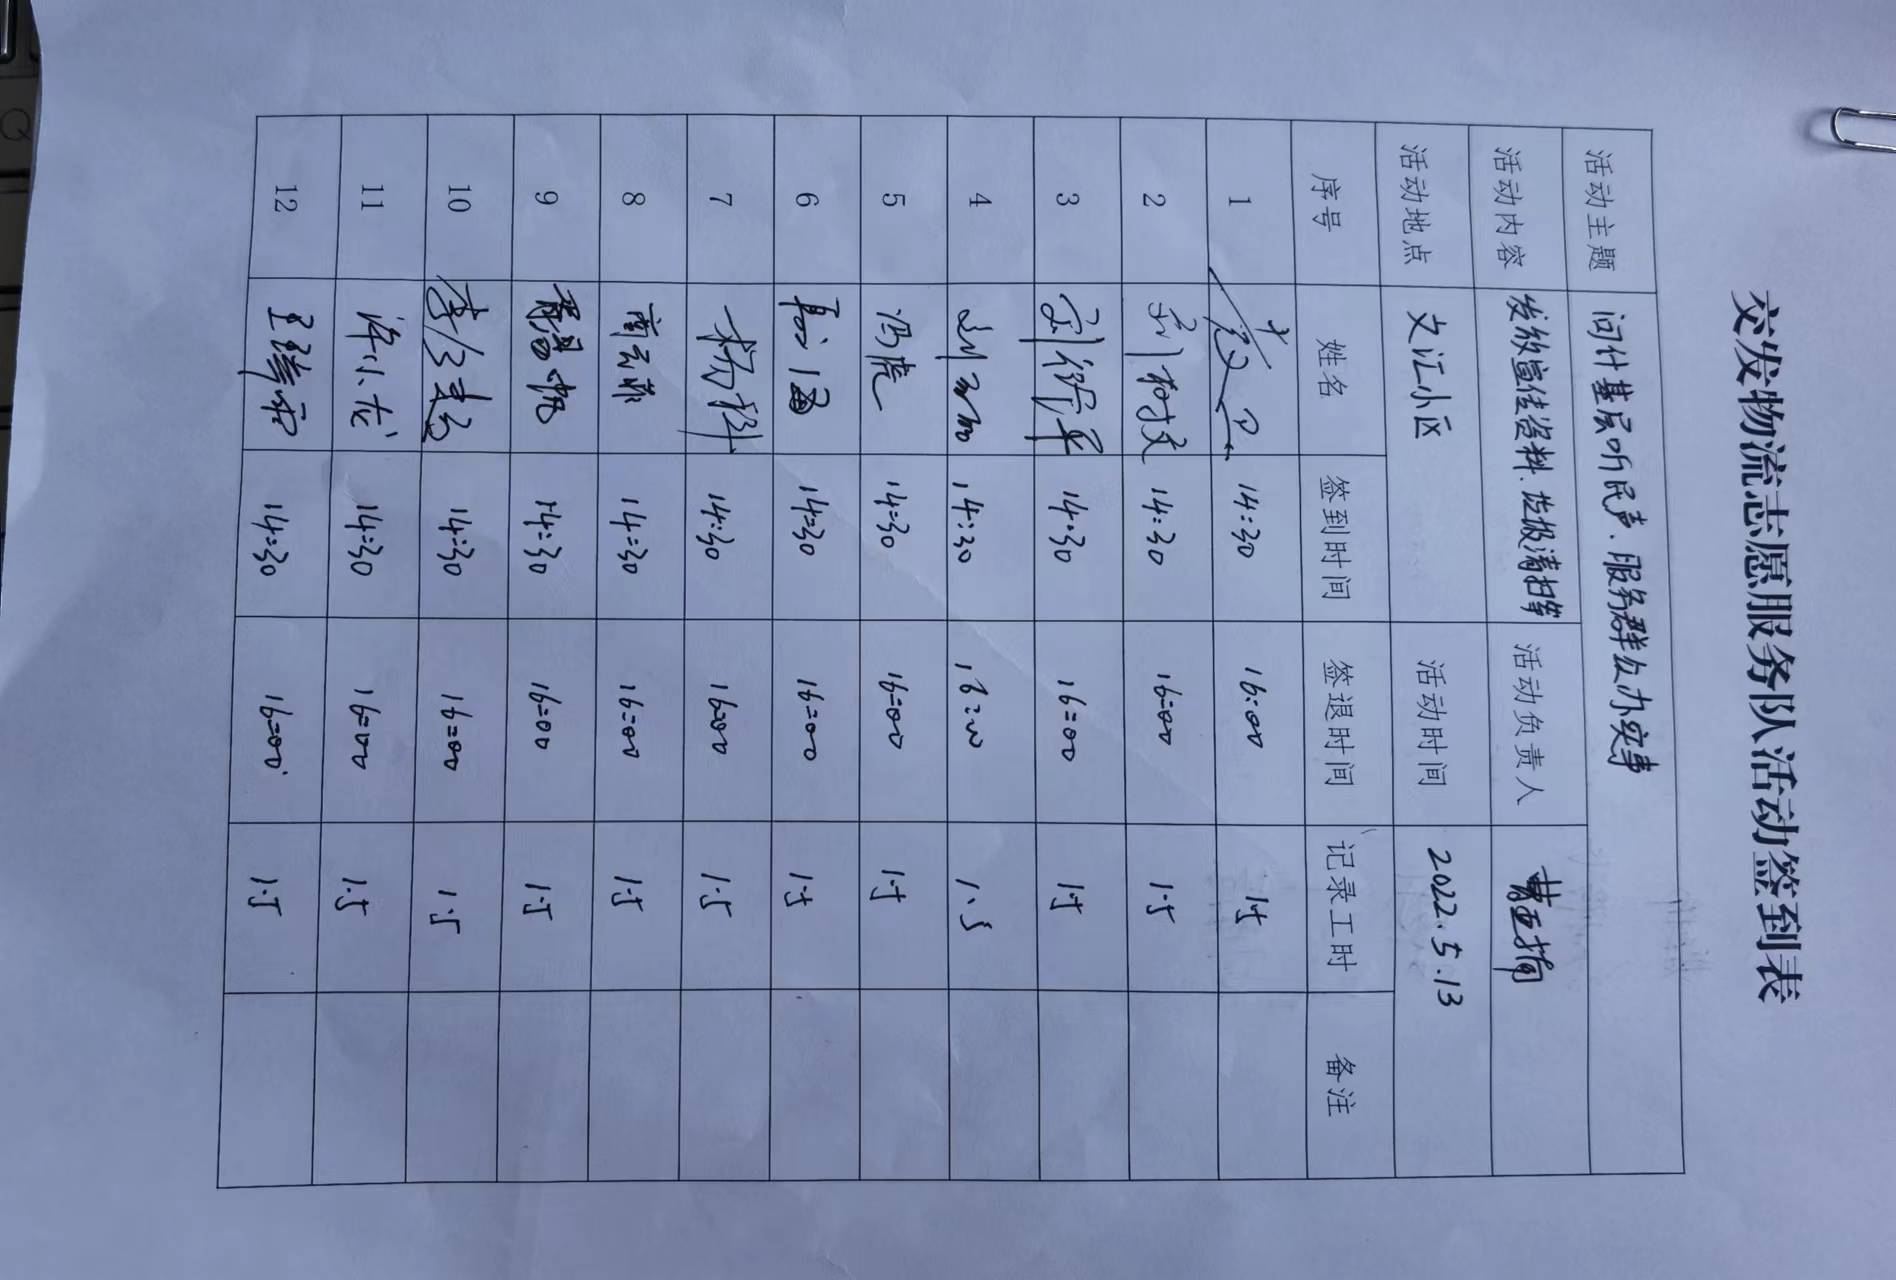 交发物流志愿服务队活动签到表
活动主题 问计基层听民声、服务群众办实事
活动内容 发放宣传资料、垃圾清扫等 活动负责人
活动地点 文汇小区 活动时间 2022.5.13
序号 姓名 签到时间 签退时间 记录工时 备注
1 14:30 16:00 1.5
2 14:30 16:00 1.5
3 14:30 16:00 1.5
4 14:30 16:00 1.5
5 冯虎 14:30 16:00 1.5
6 14:30 16:00 1.5
7 14:30 16:00 1.5
8 14:30 16:00 1.5
9 14:30 16:00 1.5
10 14:30 16:00 1.5
11 许小龙 14:30 16:00 1.5
12 14:30 16:00 1.5